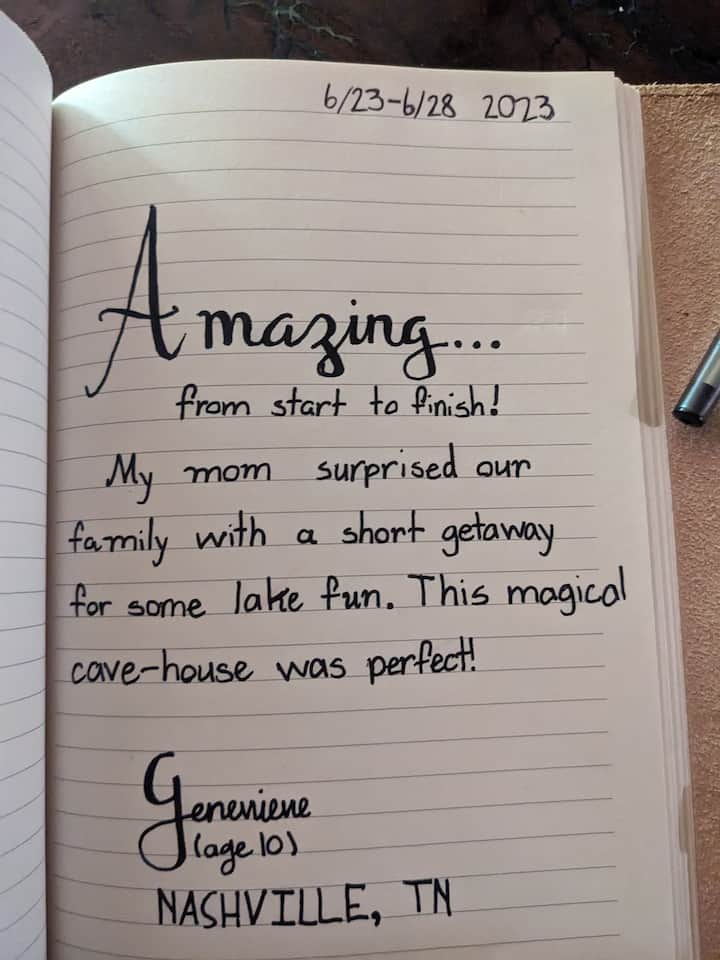 6/23-6/28 2023
Amazing...
from start to finish!
My mom surprised our
family with a short getaway
for some lake fun. This magical
cave-house was perfect!
Genevieve
(age 10)
NASHVILLE, TN